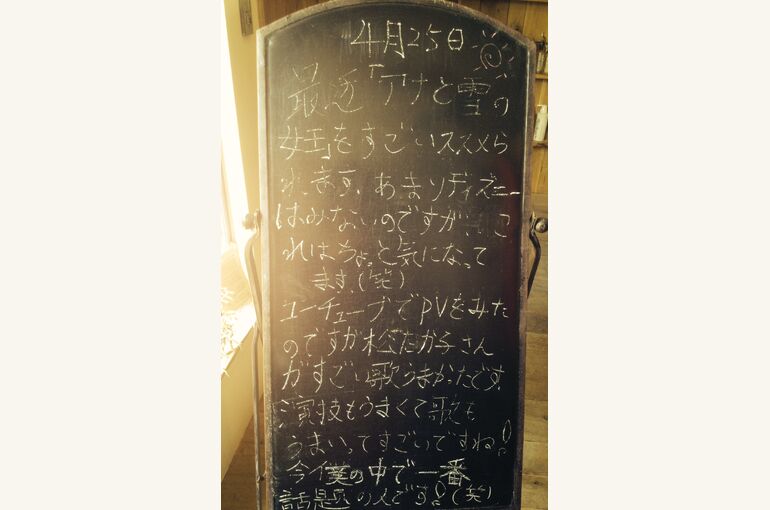 4月25日
最近「アナと雪の
女王」をすごいススメら
れます。あまりディズニー
はみないのですが、こ
れはちょっと気になって
ます。(笑)
ユーチューブでPVをみた
のですが松たか子さん
がすごい歌うまかったです。
演技もうまくて歌も
うまいってすごいですね!
今僕の中で一番
話題の人です!(笑)